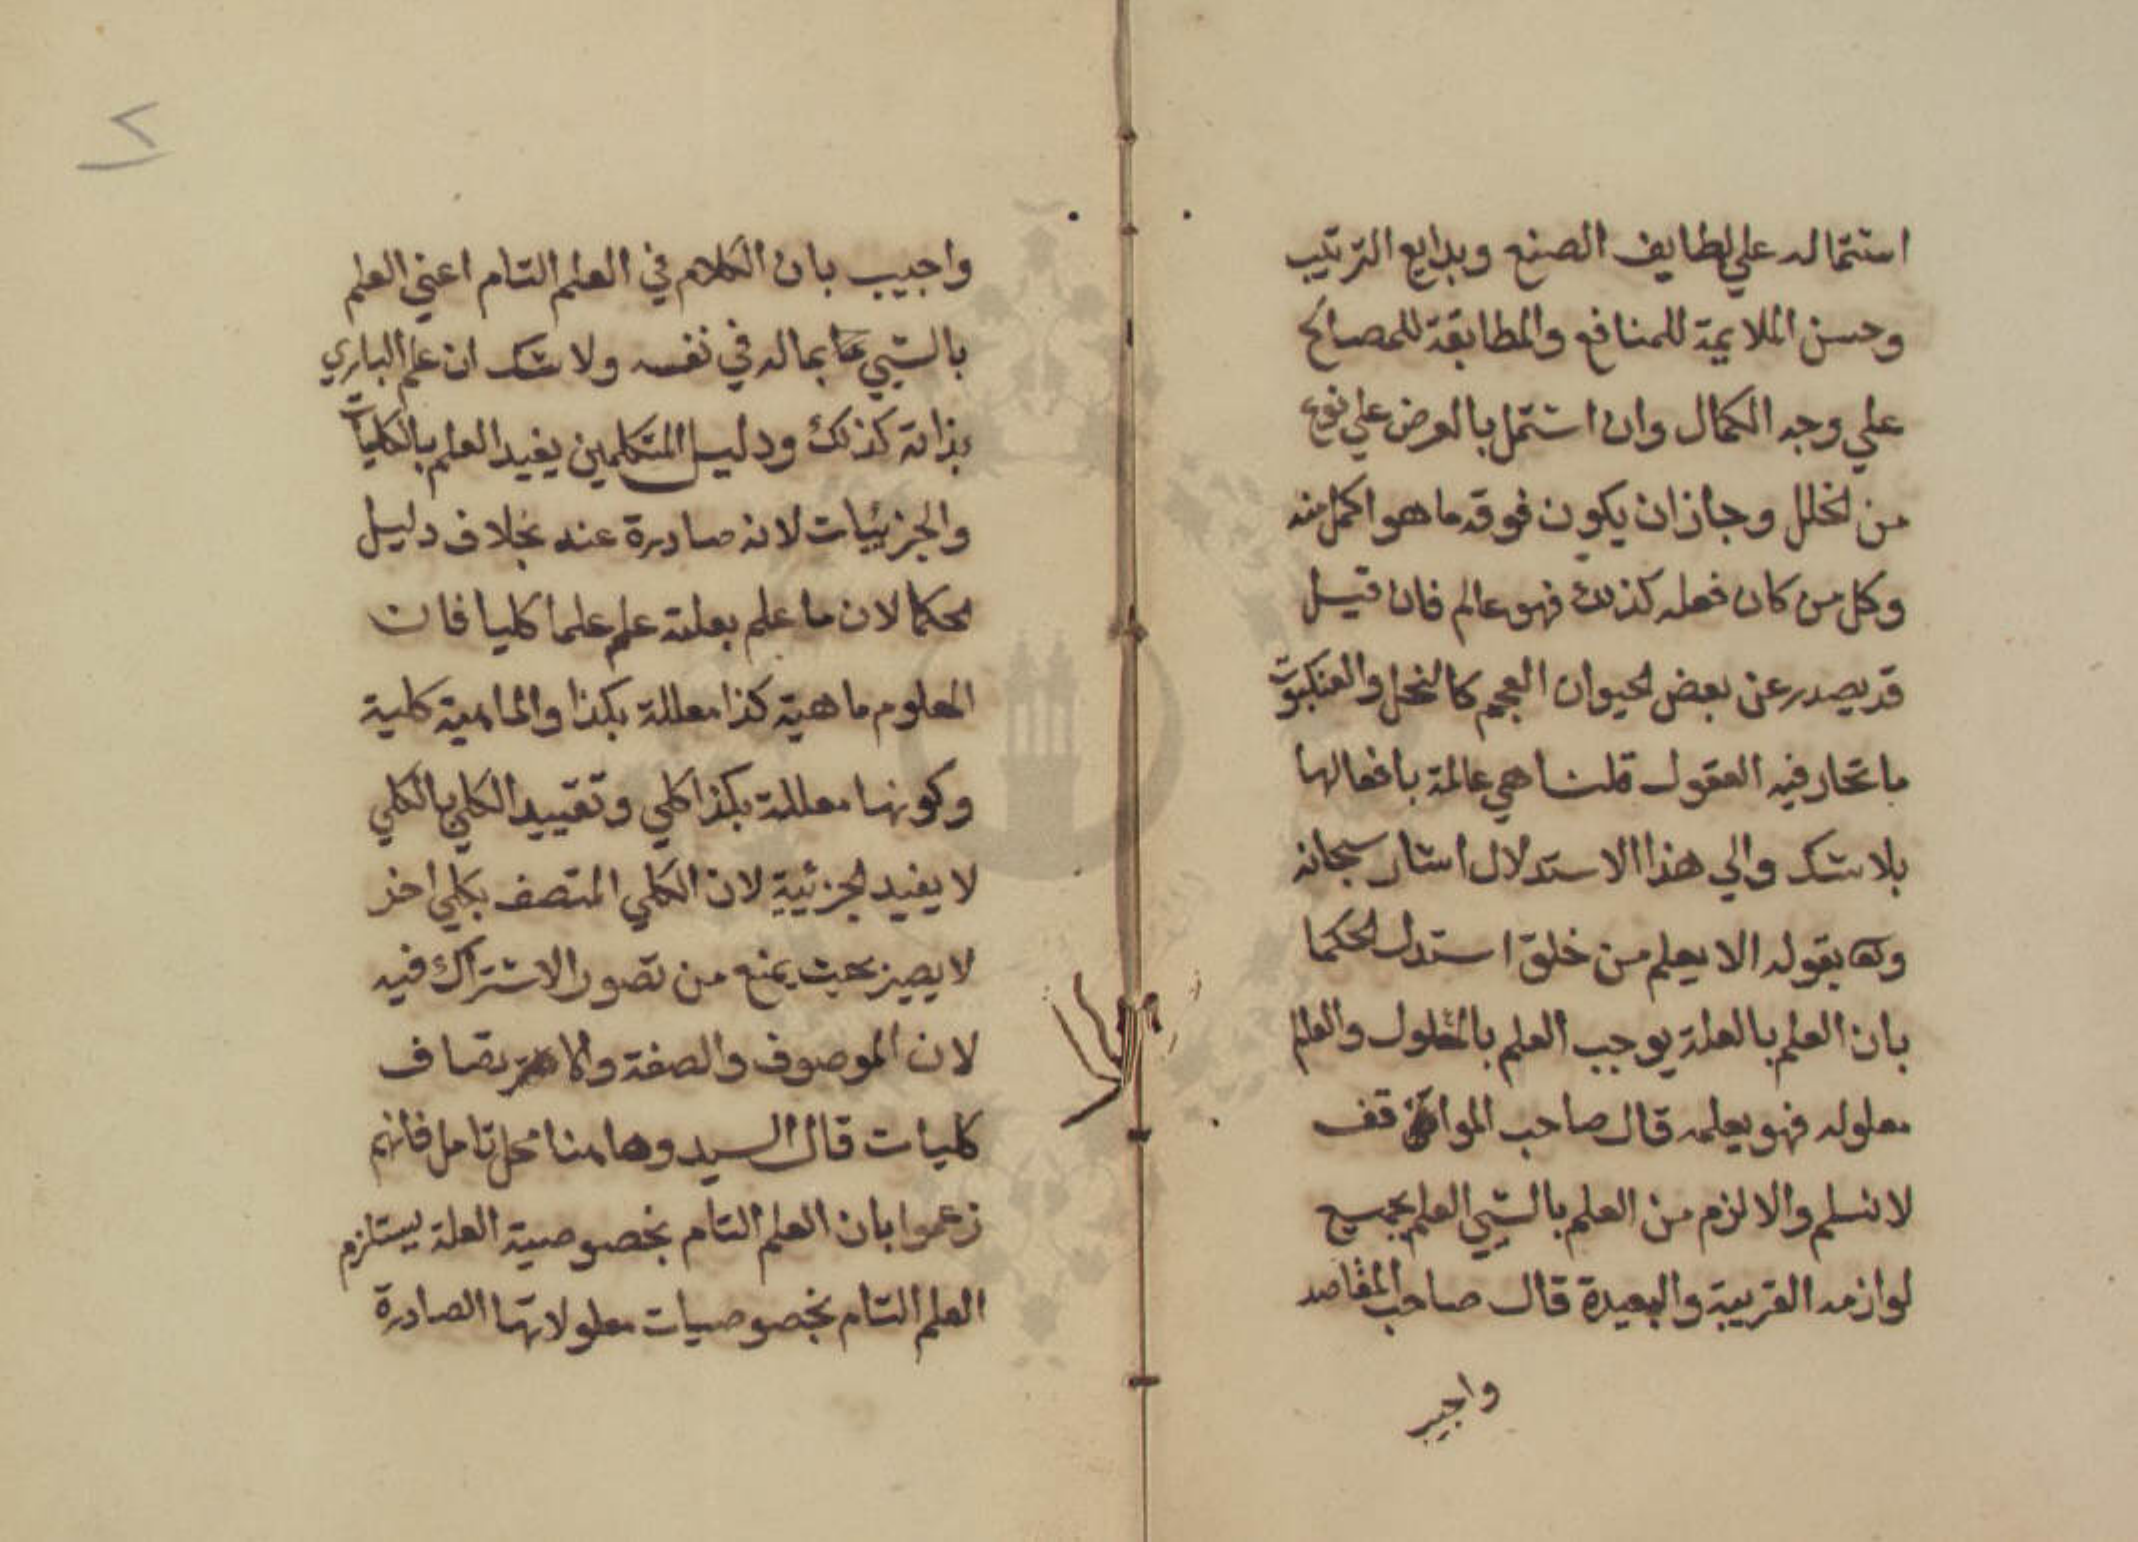 اشتماله علي لطايف الصنع وبدايع الترتيب
وحسن الملايمة للمنافع والمطابقة للمصالح
علي وجه الكمال وان اشتمل بالعرض علي نوع
من الخلل وجاز ان يكون فوقه ما هو اكمل منه
وكل من كان فعله كذلك فهو عالم فان قيل
قد يصدر عن بعض الحيوان العجم كالنحل والعنكبوت
ما تحار فيه العقول قلنا هي عالمة بافعالها
بلا شك والي هذا الاستدلال اشار سبحانه
بقوله الا يعلم من خلق استدل الحكما
بان العلم بالعلة يوجب العلم بالمعلول والعلم
معلوله فهو يعلمه قال صاحب المواقف
لا نسلم والا لزم من العلم بالشيي العلم بجميع
لوازمه القريبة والبعيدة قال صاحب المقاصد
واجيب
واجيب بان الكلام في العلم التام اعني العلم
بالشيي بماله في نفسه ولا شك ان علم الباري
بذاته كذلك ودليل المتكلمين يفيد العلم بالكليات
والجزئيات لانه صادرة عنه بخلاف دليل
الحكما لان ما علم بعلته علم علما كليا فان
المعلوم ماهية كذا معللة بكذا والماهية كلية
وكونها معللة بكذا كلي وتقييد الكلي بالكلي
لا يفيد الجزئية لان الكلي المتصف بكلي اخر
لا يصير بحيث يمنع من تصور الاشتراك فيه
لان الموصوف والصفة والا تصاف
كليات قال السيد وهاهنا محل تامل فانهم
زعموا بان العلم التام بخصوصية العلة يستلزم
العلم التام بخصوصيات معلولاتها الصادرة